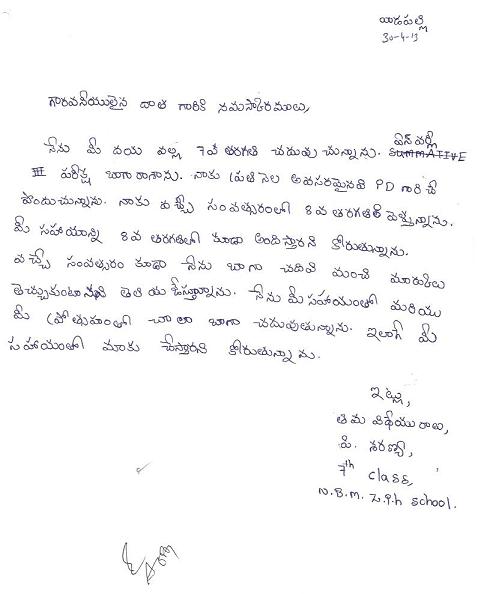 యిడపల్లి
30-4-13
గౌరవనీయులైన దాత గారికి నమస్కారములు,
నేను మీ దయ వల్ల 7వ తరగతి చదువు చున్నాను. SUMMATIVE
III పరీక్ష బాగా రాసాను. నాకు ప్రతి నెల అవసరమైనవి PD గారి చే
పొందుచున్నాను. నాకు వచ్చే సంవత్సరంలో 8వ తరగతికి వెళ్తున్నాను.
మీ సహాయాన్ని 8వ తరగతిలో కూడా అందిస్తారని కోరుతున్నాను.
వచ్చే సంవత్సరం కూడా నేను బాగా చదివి మంచి మారుకులు
తెచ్చుకుంటానని తెలియ జేస్తున్నాను. నేను మీ సహాయంతో మరియు
మీ ప్రోత్సాహంతో చాలా బాగా చదువుతున్నాను. ఇలాగే మీ
సహాయంతో మాకు చేస్తారని కోరుతున్నాను.
ఇట్లు,
తమ విధేయురాలు,
పి. శరణ్య,
7th class,
N.B.M. Z.P.h school.